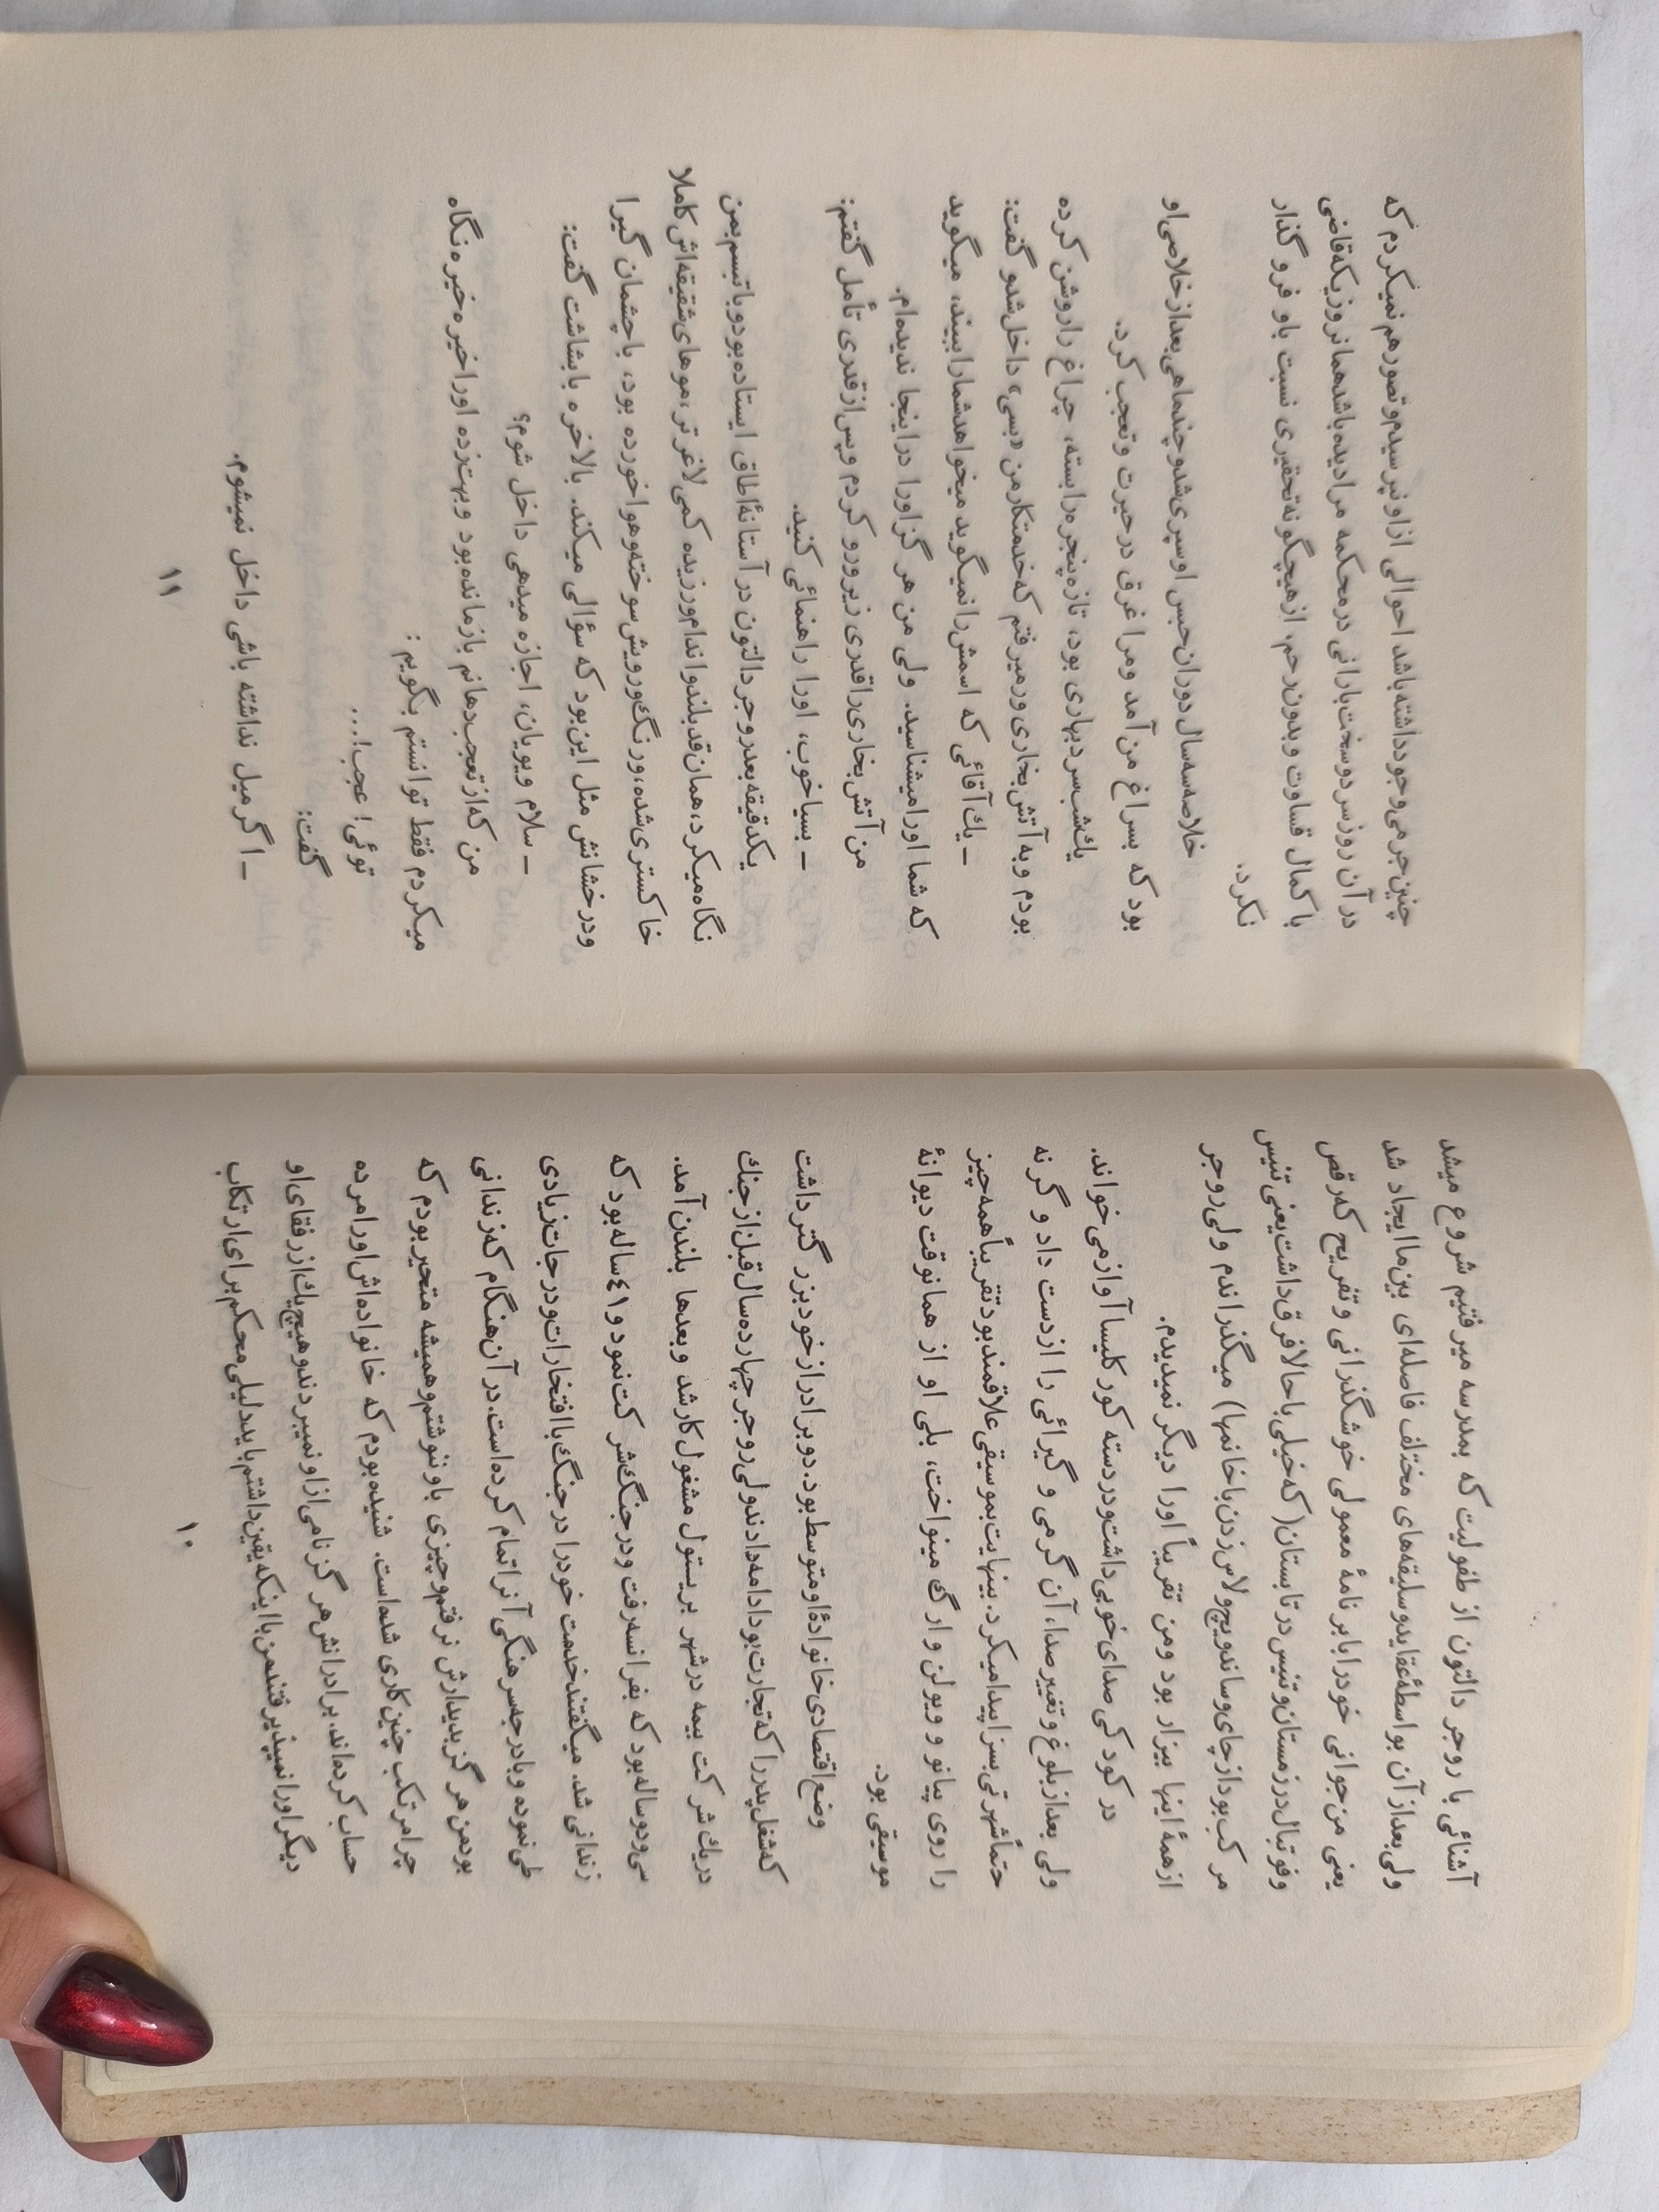 آشنائی با روجر دالتون از طفولیت که بمدرسه میرفتیم شروع میشد
ولی بعداز آن بواسطهٔ عقاید و سلیقه‌های مختلف فاصله‌ای بین ما ایجاد شد
یعنی من جوانی خود را با برنامهٔ معمولی خوشگذرانی و تفریح که رقص
و فوتبال در زمستان و تنیس در تابستان (که خیلی با حالا فرق داشت یعنی تنیس
مرکب بود از چای و ساندویچ و لاس زدن با خانمها) میگذراندم ولی روجر
از همهٔ اینها بیزار بود و من تقریباً او را دیگر نمیدیدم.
در کودکی صدای خوبی داشت و در دسته کور کلیسا آواز می خواند.
ولی بعد از بلوغ و تغییر صدا، آن گرمی و گیرائی را از دست داد و گرنه
حتماً شهرتی بسزا پیدا میکرد. بینهایت بموسیقی علاقمند بود تقریباً همه چیز
را روی پیانو و ویولن و ارگ مینواخت، بلی او از همانوقت دیوانهٔ
موسیقی بود.
وضع اقتصادی خانوادهٔ او متوسط بود. دو برادر از خود بزرگتر داشت
که شغل پدر را که تجارت بود ادامه دادند ولی روجر چهارده سال قبل از جنك
در یك شرکت بیمه در شهر بریستول مشغول کار شد و بعدها بلندن آمد.
سی و دو ساله بود که بفرانسه رفت و در جنگ شرکت نمود و ٤١ ساله بود که
زندانی شد. میگفتند خدمت خود را در جنگ با افتخارات و درجات زیادی
طی نموده و با درجه سرهنگی آنرا تمام کرده است. در آن هنگام که زندانی
بود من هرگز بدیدارش نرفتم و چیزی باو ننوشتم و همیشه متحیر بودم که
چرا مرتکب چنین کاری شده است. شنیده بودم که خانواده‌اش او را مرده
حساب کرده‌اند. برادرانش هرگز نامی از او نمیبردند و هیچیك از رفقای او
دیگر او را نمیپذیرفتند من با اینکه یقین داشتم باید دلیلی محکم برای ارتکاب
۱۰
چنین جرمی وجود داشته باشد احوالی از او نپرسیدم و تصور هم نمیکردم که
در آن روز سرد و سخت بارانی در محکمه مرا دیده باشد همانروزیکه قاضی
با کمال قساوت و بدون رحم، از هیچگونه تحقیری نسبت باو فروگذار
نکرد.
خلاصه سه سال دوران حبس او سپری شد و چند ماهی بعد از خلاصی او
بود که بسراغ من آمد و مرا غرق در حیرت و تعجب کرد.
یك شب سرد بهاری بود، تازه پنجره را بسته، چراغ را روشن کرده
بودم و به آتش بخاری ورمیرفتم که خدمتکار من «بسی» داخل شد و گفت:
ــ یك آقائی که اسمش را نمیگوید میخواهد شما را ببیند، میگوید
که شما او را میشناسید. ولی من هرگز او را در اینجا ندیده‌ام.
من آتش بخاری را قدری زیر و رو کردم و پس از قدری تأمل گفتم:
ــ بسیا خوب، او را راهنمائی کنید.
یکدقیقه بعد روجر دالتون در آستانهٔ اطاق ایستاده بود و با تبسم بمن
نگاه میکرد، همان قد بلند و اندام ورزیده کمی لاغرتر، موهای شقیقه‌اش کاملا
خاکستری شده، و رنگ و رویش سوخته و هوا خورده بود، با چشمان گیرا
و درخشانش مثل این بود که سؤالی میکند. بالاخره با بشاشت گفت:
ــ سلام ویویان، اجازه میدهی داخل شوم؟
من که از تعجب دهانم بازمانده بود و بهت‌زده او را خیره خیره نگاه
میکردم فقط توانستم بگویم:
توئی! عجب!...
گفت:
ــ اگر میل نداشته باشی داخل نمیشوم.
۱۱